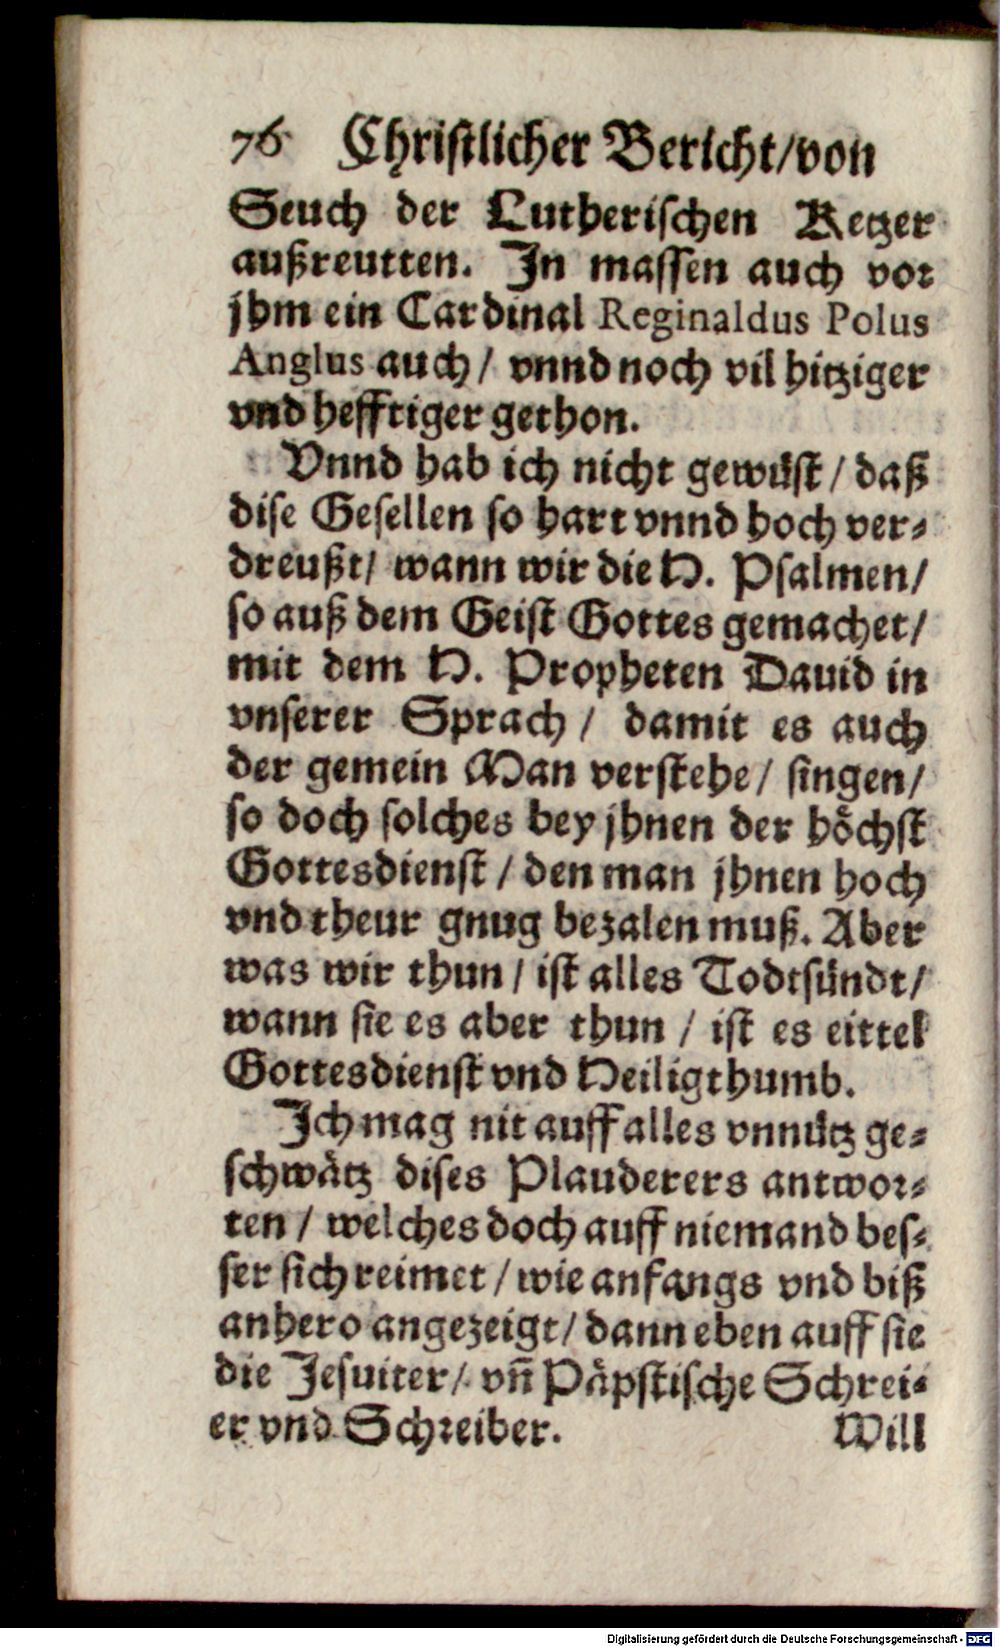 76 Christlicher Bericht/von
Seuch der Lutherischen Ketzer
außreutten. In massen auch vor
jhm ein Cardinal Reginaldus Polus
Anglus auch/ vnnd noch vil hitziger
vnd hefftiger gethon.
Vnnd hab ich nicht gewüst/ daß
dise Gesellen so hart vnnd hoch ver-
dreußt/ wann wir die H. Psalmen/
so auß dem Geist Gottes gemachet/
mit dem H. Propheten Dauid in
vnserer Sprach/ damit es auch
der gemein Man verstehe/ singen/
so doch solches bey jhnen der höchst
Gottesdienst/ den man jhnen hoch
vnd theur gnug bezalen muß. Aber
was wir thun/ ist alles Todtsündt/
wann sie es aber thun/ ist es eittel
Gottesdienst vnd Heiligthumb.
Ich mag nit auff alles vnnütz ge-
schwätz dises Plauderers antwor-
ten/ welches doch auff niemand bes-
ser sich reimet/ wie anfangs vnd biß
anhero angezeigt/ dann eben auff sie
die Jesuiter/ vñ Päpstische Schrei-
er vnd Schreiber. Will
Digitalisierung gefördert durch die Deutsche Forschungsgemeinschaft - DFG